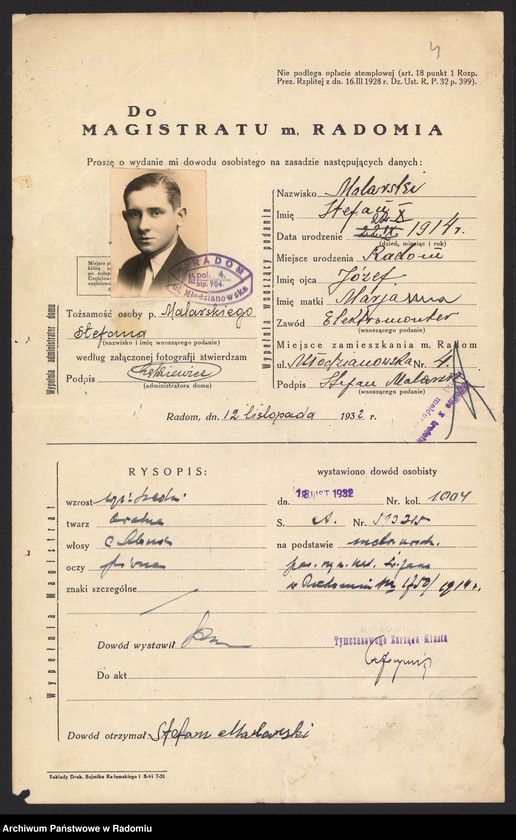 4
Nie podlega opłacie stemplowej (art. 18 punkt 1 Rozp.
Prez. Rzplitej z dn. 16.III 1928 r. Dz. Ust. R. P. 32 p. 399).
Do
MAGISTRATU m. RADOMIA
Proszę o wydanie mi dowodu osobistego na zasadzie następujących danych:
Nazwisko Malarski
Imię Stefan
X
Data urodzenie 1914 r.
(dzień, miesiąc i rok)
Miejsce urodzenia Radom
Imię ojca Józef
Imię matki Marjanna
Zawód Elektromonter
(wnoszącego podanie)
Miejsce zamieszkania m. Radom
ul. Młodzianowska Nr. 4.
Podpis Stefan Malarski
(wnoszącego podanie)
Wypełnia wnoszący podanie
RADOM
№ pol. 4.
hip. 704.
ul. Młodzianowska
Wypełnia administrator domu
Tożsamość osoby p. Malarskiego
Stefana
(nazwisko i imię wnoszącego podanie)
według załączonej fotografji stwierdzam
Podpis
(administratora domu)
Radom, dn. 12 listopada 1932 r.
Wypełnia Magistrat
RYSOPIS:
wzrost
twarz
włosy
oczy piwne
znaki szczególne
wystawiono dowód osobisty
dn. 18 LIST 1932 Nr. kol. 1004
S. A. Nr.
na podstawie
1914 r.
Dowód wystawił
Tymczasowego Zarządu Miasta
Do akt
Dowód otrzymał Stefan Malarski
Zakłady Druk. Sejmiku Radomskiego
Archiwum Państwowe w Radomiu